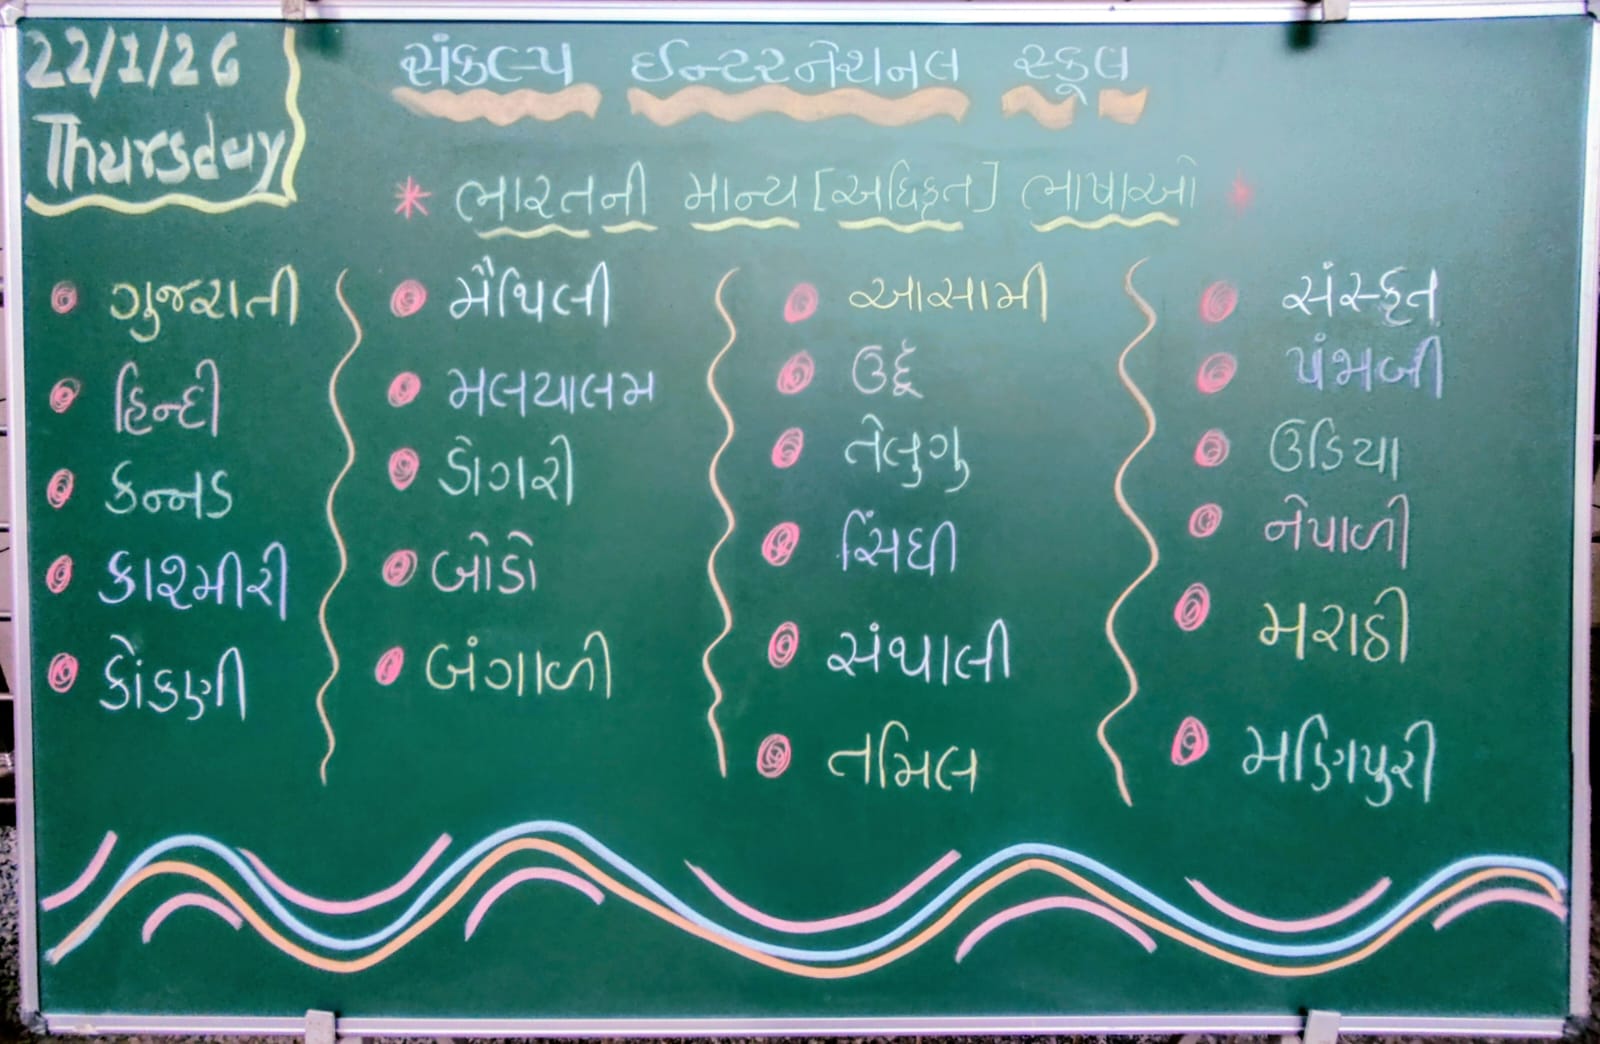 22/1/26
Thursday
સંકલ્પ ઈન્ટરનેશનલ સ્કૂલ
* ભારતની માન્ય [અધિકૃત] ભાષાઓ *
ગુજરાતી
હિન્દી
કન્નડ
કાશ્મીરી
કોંકણી
મૈથિલી
મલયાલમ
ડોગરી
બોડો
બંગાળી
આસામી
ઉર્દૂ
તેલુગુ
સિંધી
સંથાલી
તમિલ
સંસ્કૃત
પંજાબી
ઉડિયા
નેપાળી
મરાઠી
મણિપુરી